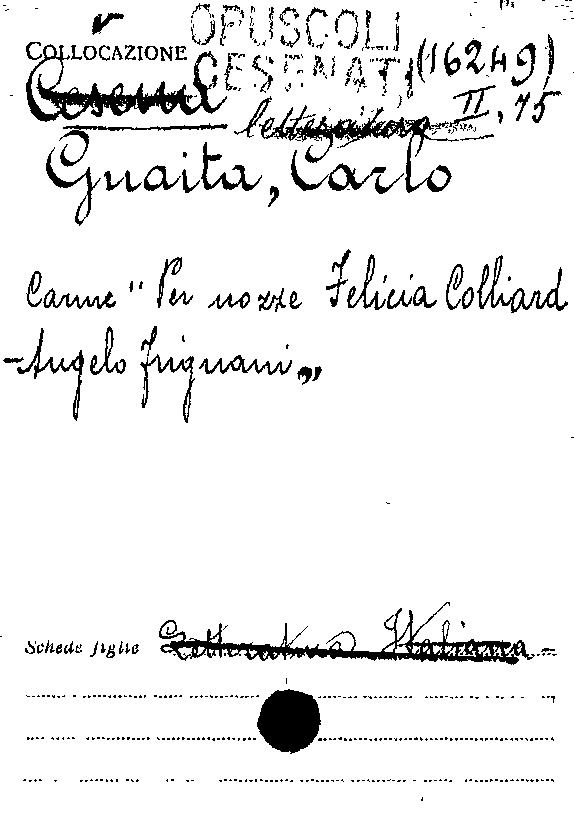 COLLOCAZIONE
OPUSCOLI
CESENATI
(16249)
II, 75
letteratura
Guaita, Carlo
Carme " Per nozze Felicia Colliard
- Angelo Frignani „
Schede figlie Letteratura Italiana